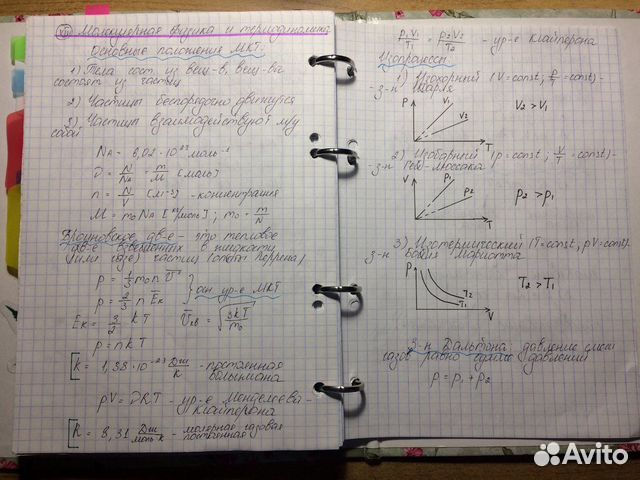 VII Молекулярная физика и термодинамика
Основные положения МКТ.
1) Тела сост. из вещ-в, вещ-ва
состоят из частиц
2) Частицы беспорядочно движутся
3) Частицы взаимодействуют м/у
собой
NA = 6,02 · 10²³ моль⁻¹
ν = N/NA = m/M [моль]
n = N/V [м⁻³] - концентрация
M = m₀ NA [кг/моль] ; m₀ = m/N
Броуновское дв-е - это тепловое
дв-е взвешенных в жидкости
(или газе) частиц (опыты Перрена)
p = 1/3 m₀ n v̄²
p = 2/3 n Ēк } осн. ур-е МКТ
Eк = 3/2 kT v̄кв = √(3kT/m₀)
p = nkT
[k = 1,38 · 10⁻²³ Дж/К - постоянная
Больцмана
pV = νRT - ур-е Менделеева-
Клайперона
[R = 8,31 Дж/моль·К - молярная газовая
постоянная
p₁V₁/T₁ = p₂V₂/T₂ - ур-е Клайперона
Изопроцессы
1) Изохорный (V = const, p/T = const) -
- з-н Шарля
P V₁ V₂ T V₂ > V₁
2) Изобарный (p = const ; V/T = const) -
- з-н Гей-Люссака
V p₁ p₂ T p₂ > p₁
3) Изотермический (T = const, pV = const) -
з-н Бойля Мариотта
P T₂ T₁ V T₂ > T₁
З-н Дальтона: давление смеси
газов равно сумме давлений
p = p₁ + p₂
Avito